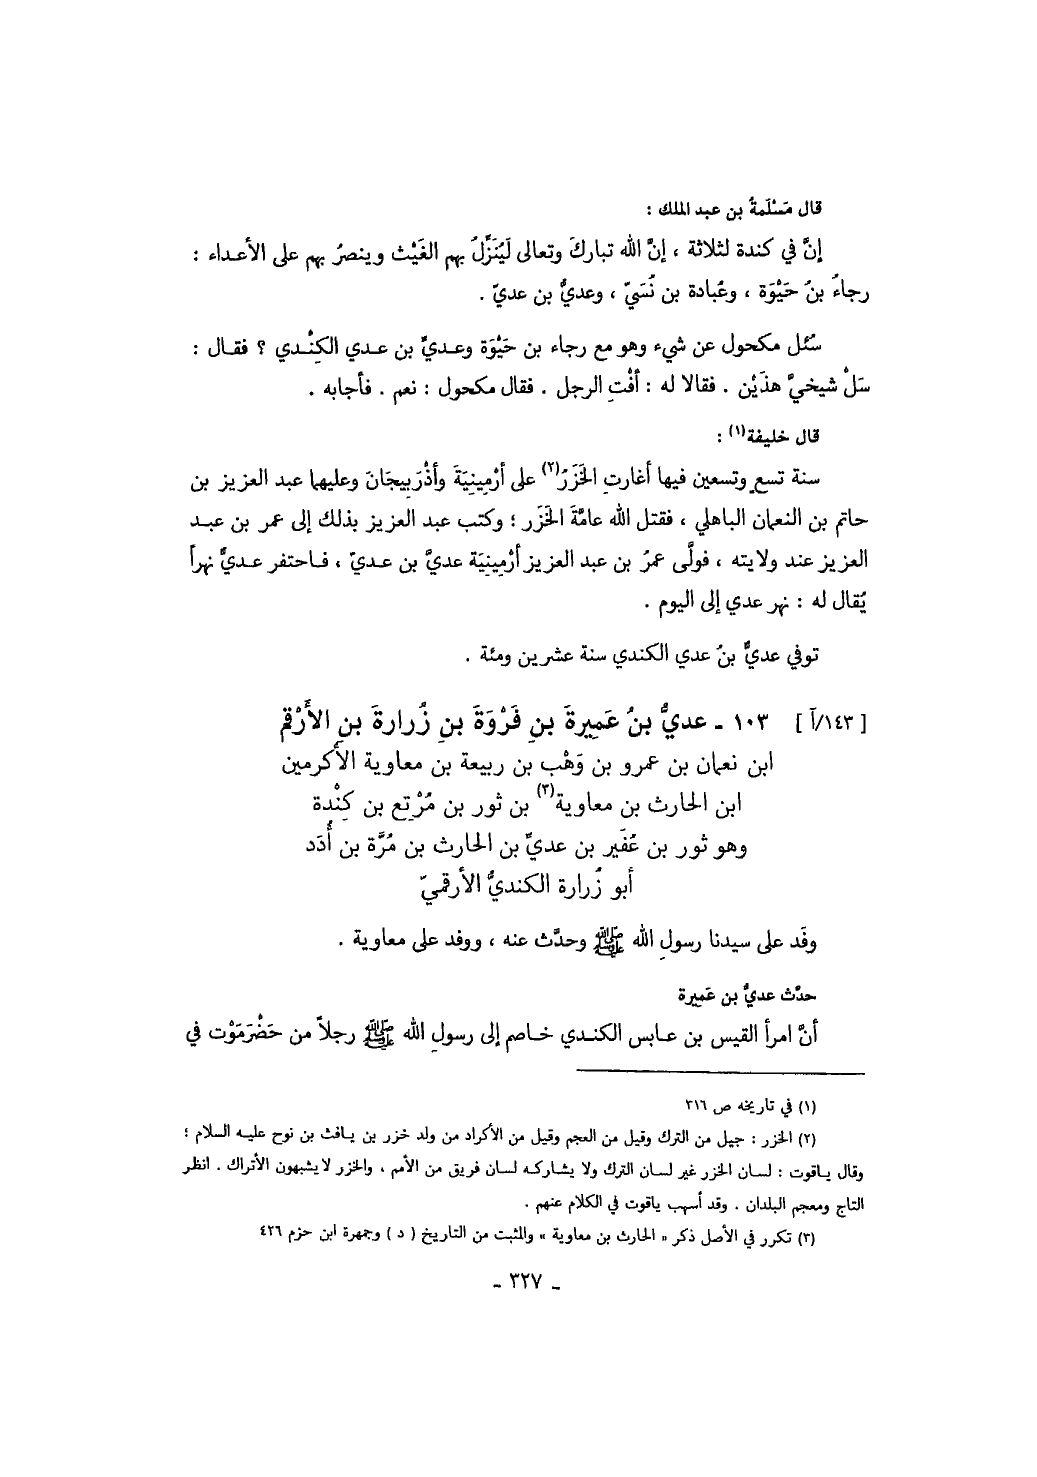 قال مَسْلَمةُ بن عبد الملك :
إنَّ في كندة لثلاثة ، إنَّ الله تباركَ وتعالى لَيُنَزِّلُ بهم الغَيْث وينصرُ بهم على الأعداء :
رجاءُ بنُ حَيْوَة ، وعُبادة بن نُسَيّ ، وعديُّ بن عديّ .
سُئل مكحول عن شيء وهو مع رجاء بن حَيْوَة وعديِّ بن عدي الكِنْدي ؟ فقال :
سَلْ شيخيَّ هذَيْن . فقالا له : أفْتِ الرجل . فقال مكحول : نعم . فأجابه .
قال خليفة(١) :
سنة تسعٍ وتسعين فيها أغارتِ الخَزَرُ(٢) على أرْمِينِيَةَ وأذْرَبِيجَانَ وعليهما عبد العزيز بن
حاتم بن النعمان الباهلي ، فقتل الله عامَّةَ الخَزَر ؛ وكتب عبد العزيز بذلك إلى عمر بن عبد
العزيز عند ولايته ، فولَّى عمرُ بن عبد العزيز أرْمِينِيَة عديَّ بن عديّ ، فاحتفر عديٌّ نهراً
يُقال له : نهر عدي إلى اليوم .
توفي عديُّ بنُ عدي الكندي سنة عشرين ومئة .
[ ١٤٣/آ ] ١٠٣ ـ عديُّ بنُ عَمِيرةَ بنِ فَرْوَةَ بنِ زُرارةَ بنِ الأَرْقم
ابن نعمان بن عمرو بن وَهْب بن ربيعة بن معاوية الأكرمين
ابن الحارث بن معاوية(٣) بن ثور بن مُرْتِع بن كِنْدة
وهو ثور بن عُفَير بن عديِّ بن الحارث بن مُرَّة بن أُدَد
أبو زُرارة الكنديُّ الأرقميّ
وفَد على سيدنا رسولِ الله ﷺ وحدَّث عنه ، ووفد على معاوية .
حدَّث عديُّ بن عَمِيرة
أنَّ امرأ القيس بن عابس الكندي خاصم إلى رسولِ الله ﷺ رجلاً من حَضْرَمَوْت في
(١) في تاريخه ص ٣١٦
(٢) الخزر : جيل من الترك وقيل من العجم وقيل من الأكراد من ولد خزر بن يافث بن نوح عليه السلام ؛
وقال ياقوت : لسان الخزر غير لسان الترك ولا يشاركه لسان فريق من الأمم ، والخزر لا يشبهون الأتراك . انظر
التاج ومعجم البلدان . وقد أسهب ياقوت في الكلام عنهم .
(٣) تكرر في الأصل ذكر « الحارث بن معاوية » والمثبت من التاريخ ( د ) وجمهرة ابن حزم ٤٢٦
ـ ٣٢٧ ـ